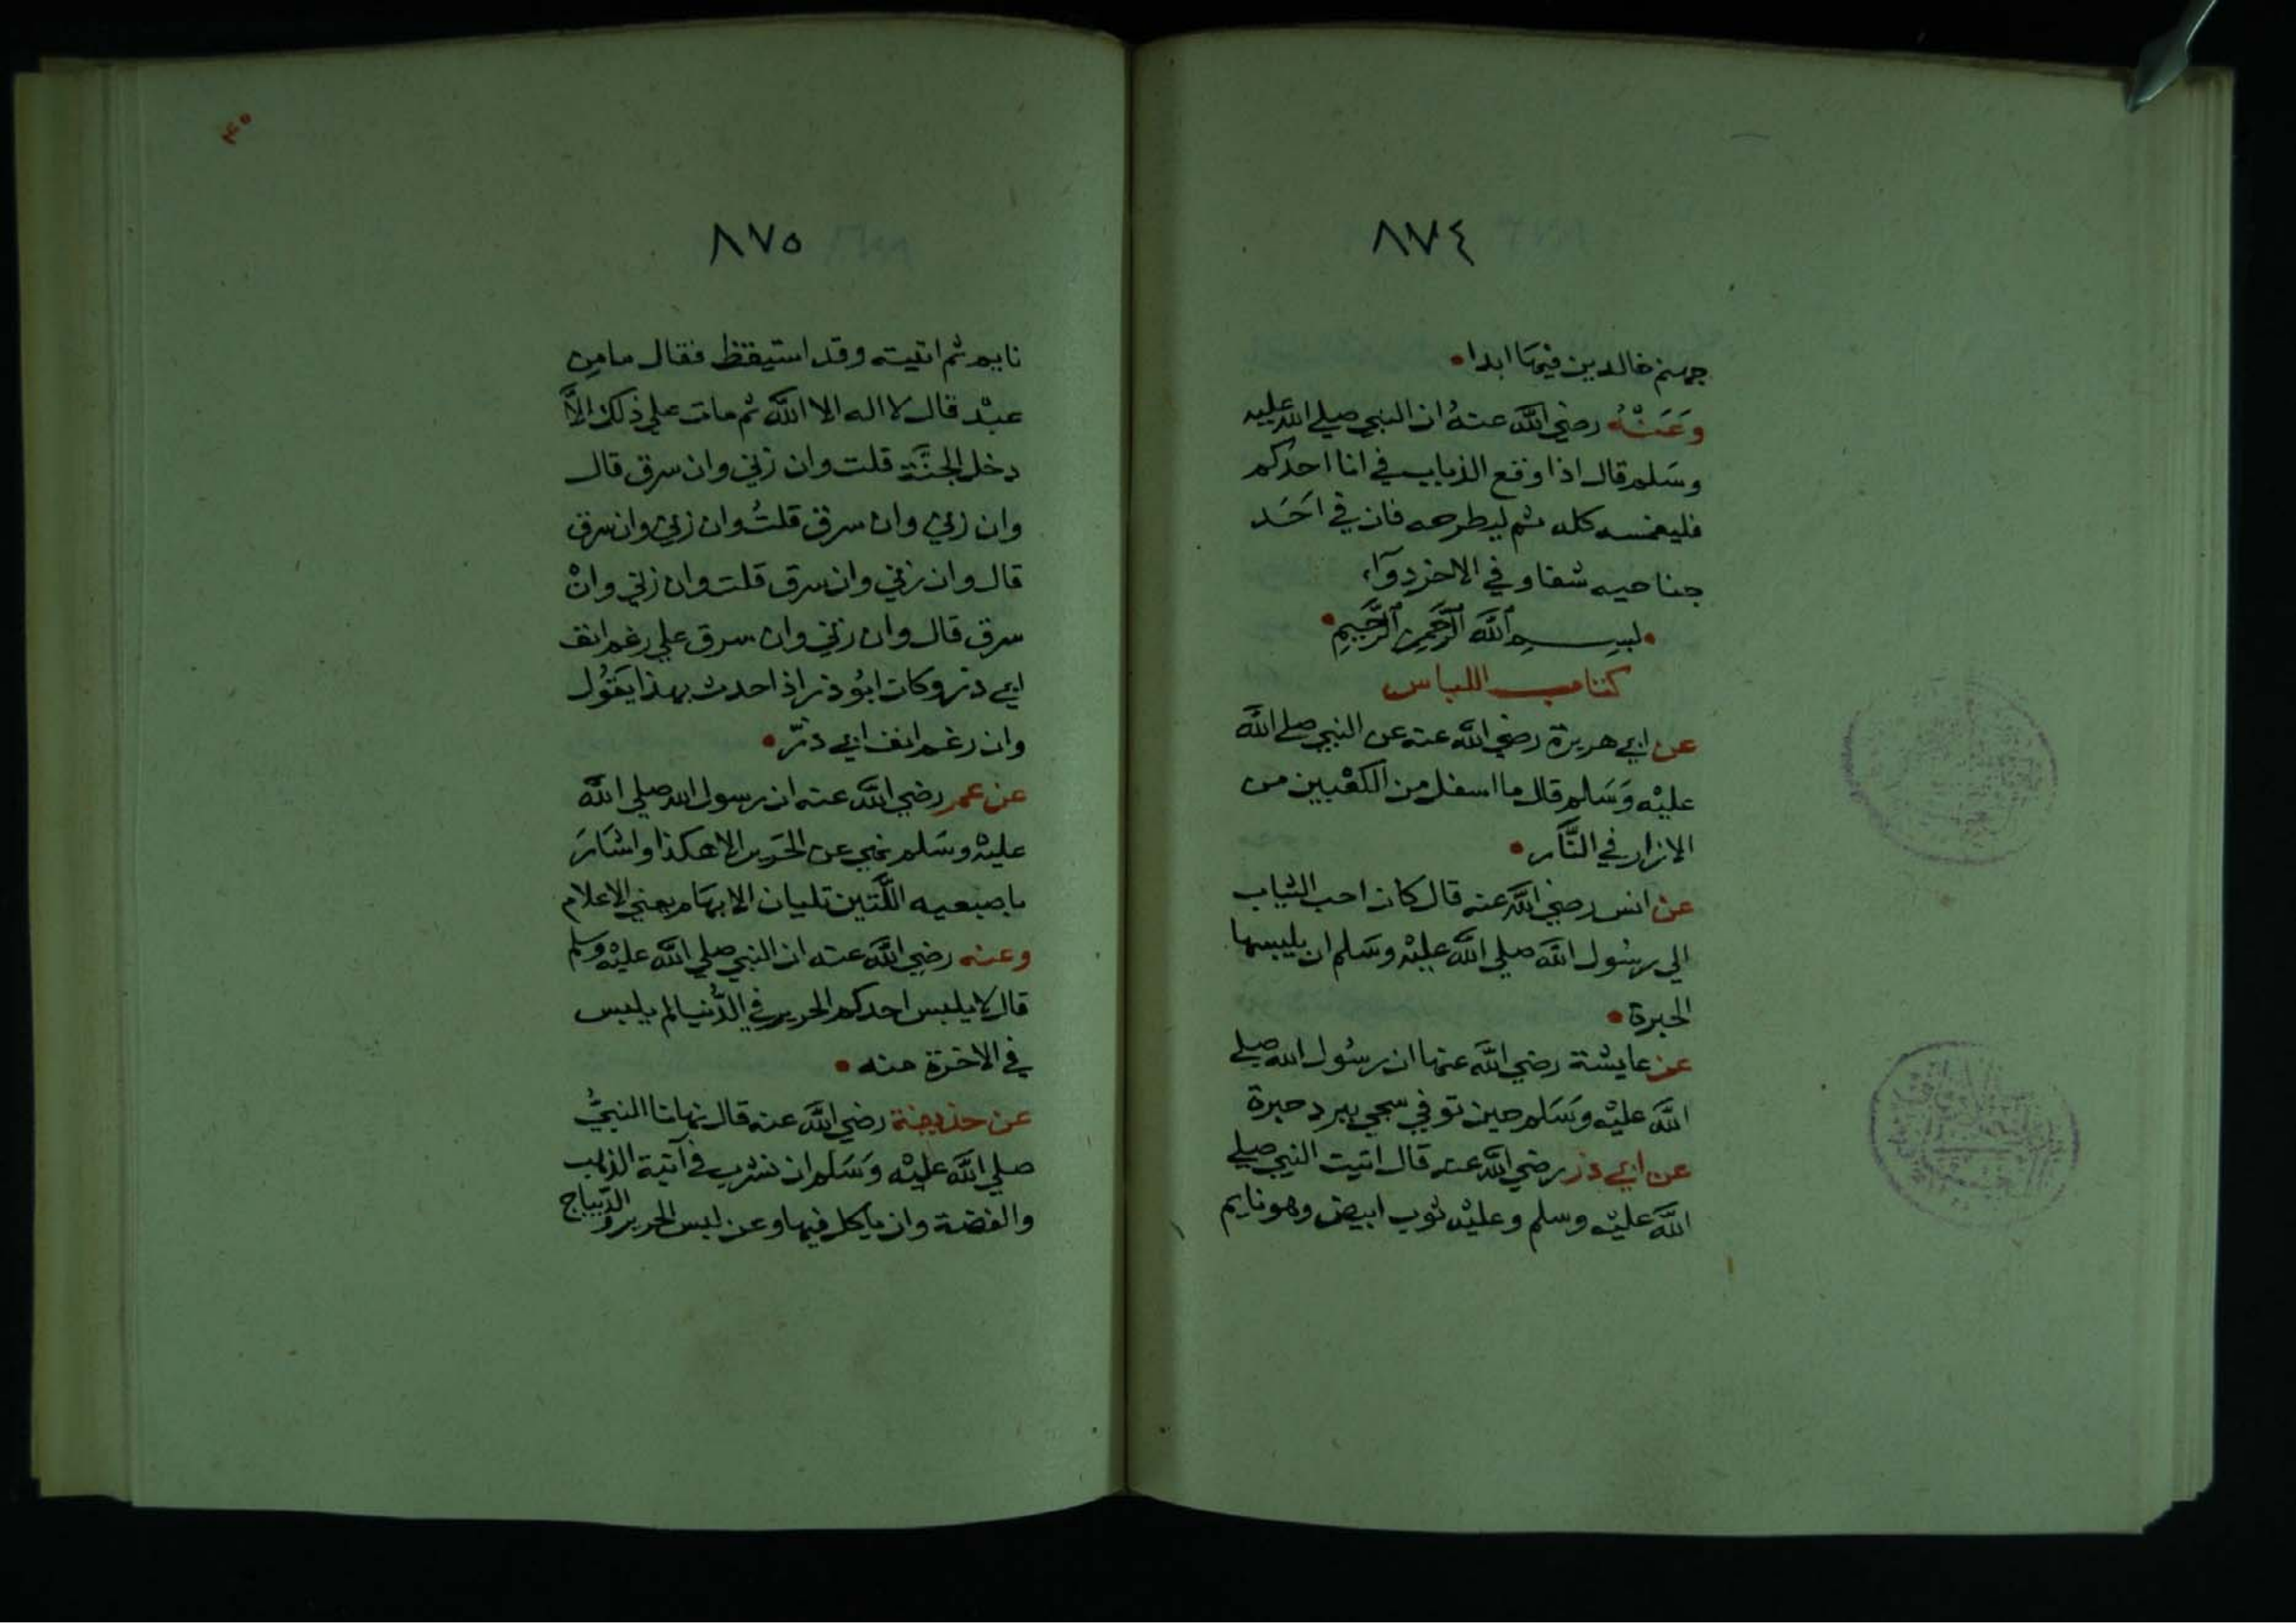 ٨٧٤
جهنم خالدين فيها ابدا
وَعَنْهُ رضي الله عنهُ ان النبي صلي الله عليه
وسَلم قال اذا وقع الذباب في انا احدكم
فليغمسه كله ثم ليطرحه فان في اَحَد
جناحيه شفا و في الاخر دوآء
بسم الله الرحمن الرحيم
كتاب اللباس
عن ابي هريرة رضي الله عنه عن النبي صلي الله
عليْه وَسَلم قال ما اسفل من الكعْبين من
الازار في النَّار
عن انس رضي الله عنه قال كان احب الثياب
الي رسُول الله صلي الله عليْه وسَلم ان يلبسها
الحبرة
عن عايشة رضي الله عنها ان رسُول الله صلي
الله عليْه وسَلم حين توفي سجي ببرد حبرة
عن ابي ذر رضي الله عنه قال اتيت النبي صلي
الله عليْه وسلم وعليْه ثوب ابيض وهو نايم
٨٧٥
نايم ثم اتيته وقد استيقظ فقال ما من
عبْد قال لا اله الا الله ثم مات علي ذلك إلاَّ
دخل الجنَّة قلت وان زني وان سرق قال
وان زني وان سرق قلتُ وان زني وان سرق
قال وان زني وان سرق قلت وان زني وانْ
سرق قال وان زني وان سرق علي رغم انف
ابي ذر وكان ابُو ذر اذا حدث بهذا يقُول
وان رغم انف ابي ذرّ
عن عمر رضي الله عنه ان رسول الله صلي الله
عليْه وسَلم نهي عن الحَرير الا هكذا واشارَ
باصبعيه اللَّتين تليان الابهام يعني الاعلام
وعنه رضي الله عنه ان النبي صلي الله عليْه وسلم
قال لا يلبس احدكم الحرير في الدُّنيا لم يلبس
في الاخرة منه
عن حذيفة رضي الله عنه قال نهانا النبيُّ
صلي الله عليْه وَسَلم ان نشرب في آنية الذهب
والفضة وان ناكل فيها وعن لبس الحرير والدِّيباج